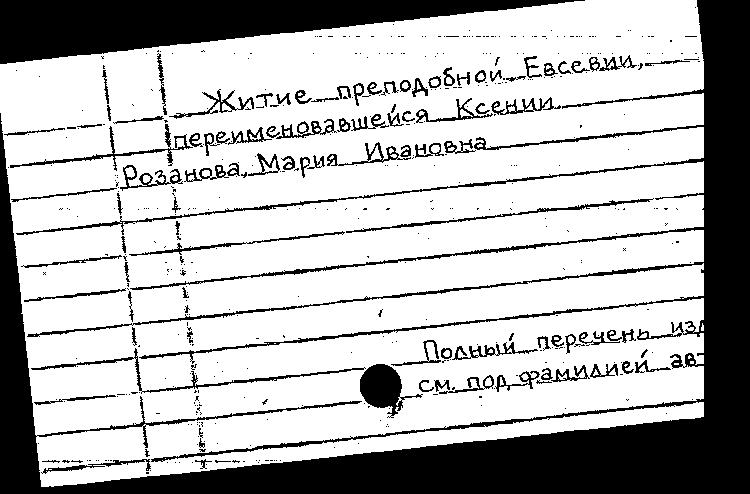 Житие преподобной Евсевии,
переименовавшейся Ксении
Розанова, Мария Ивановна
Полный перечень изд
см. под фамилией авт